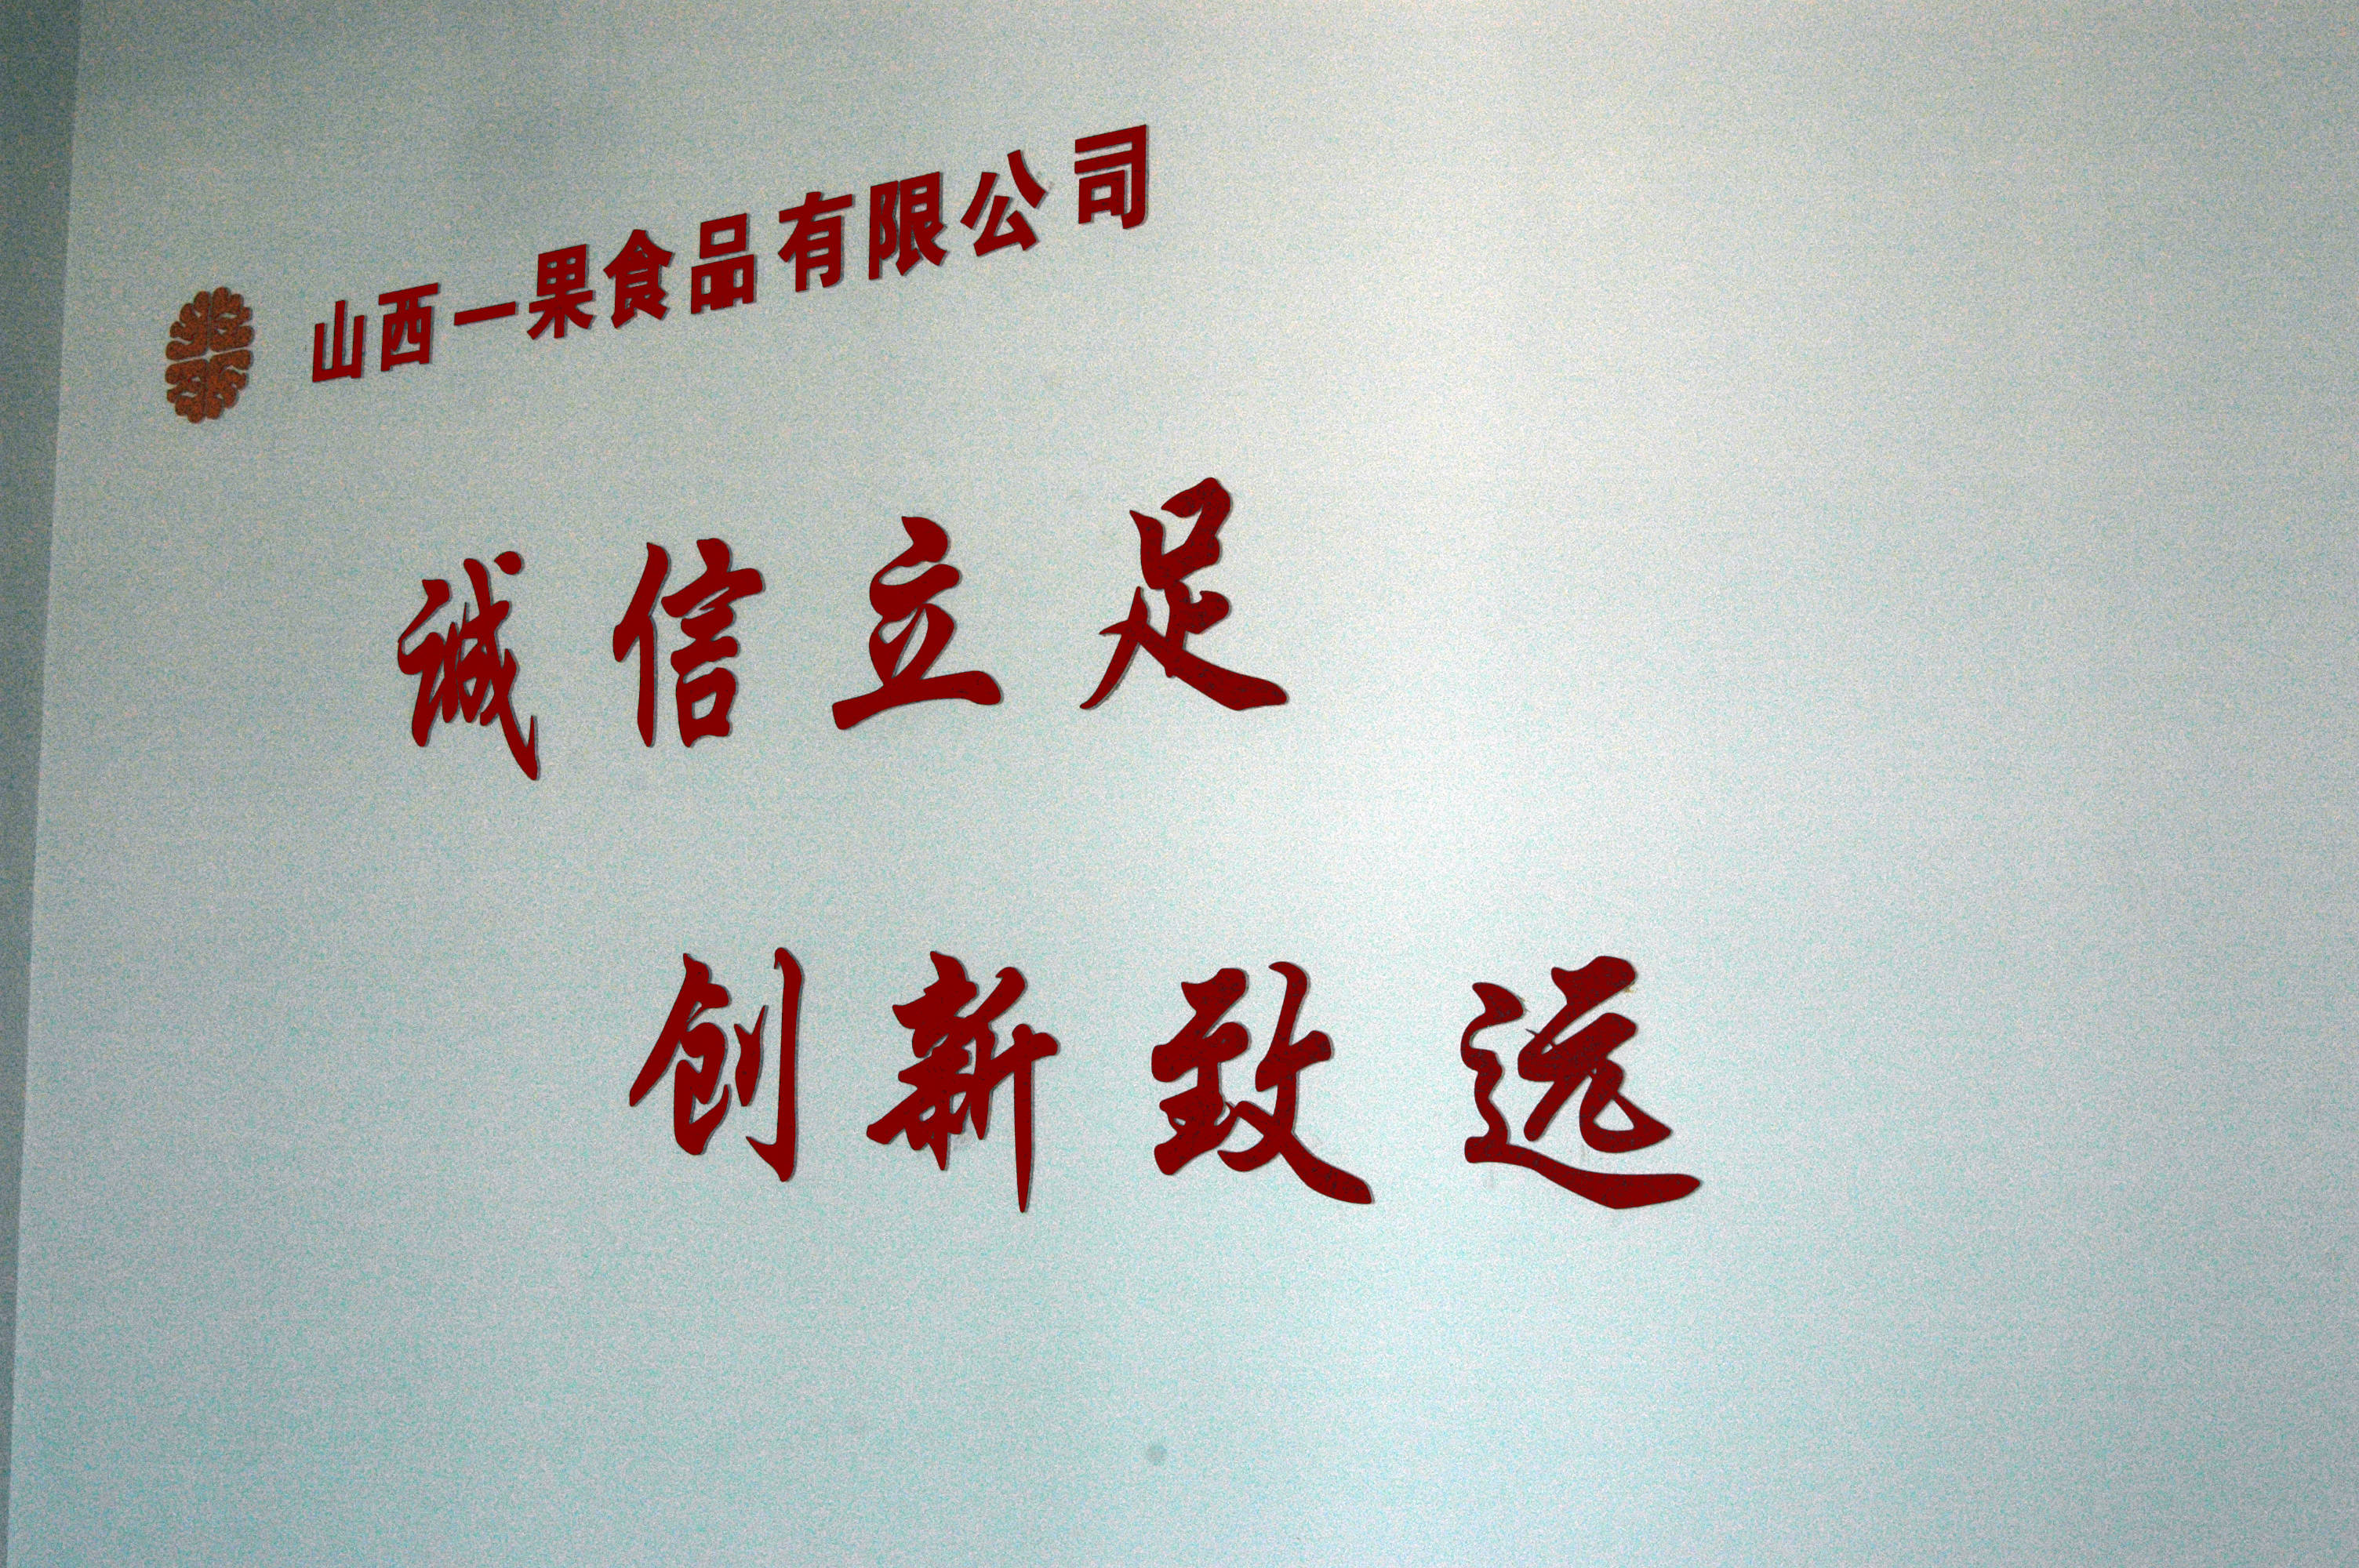 山西一果食品有限公司
诚信立足
创新致远